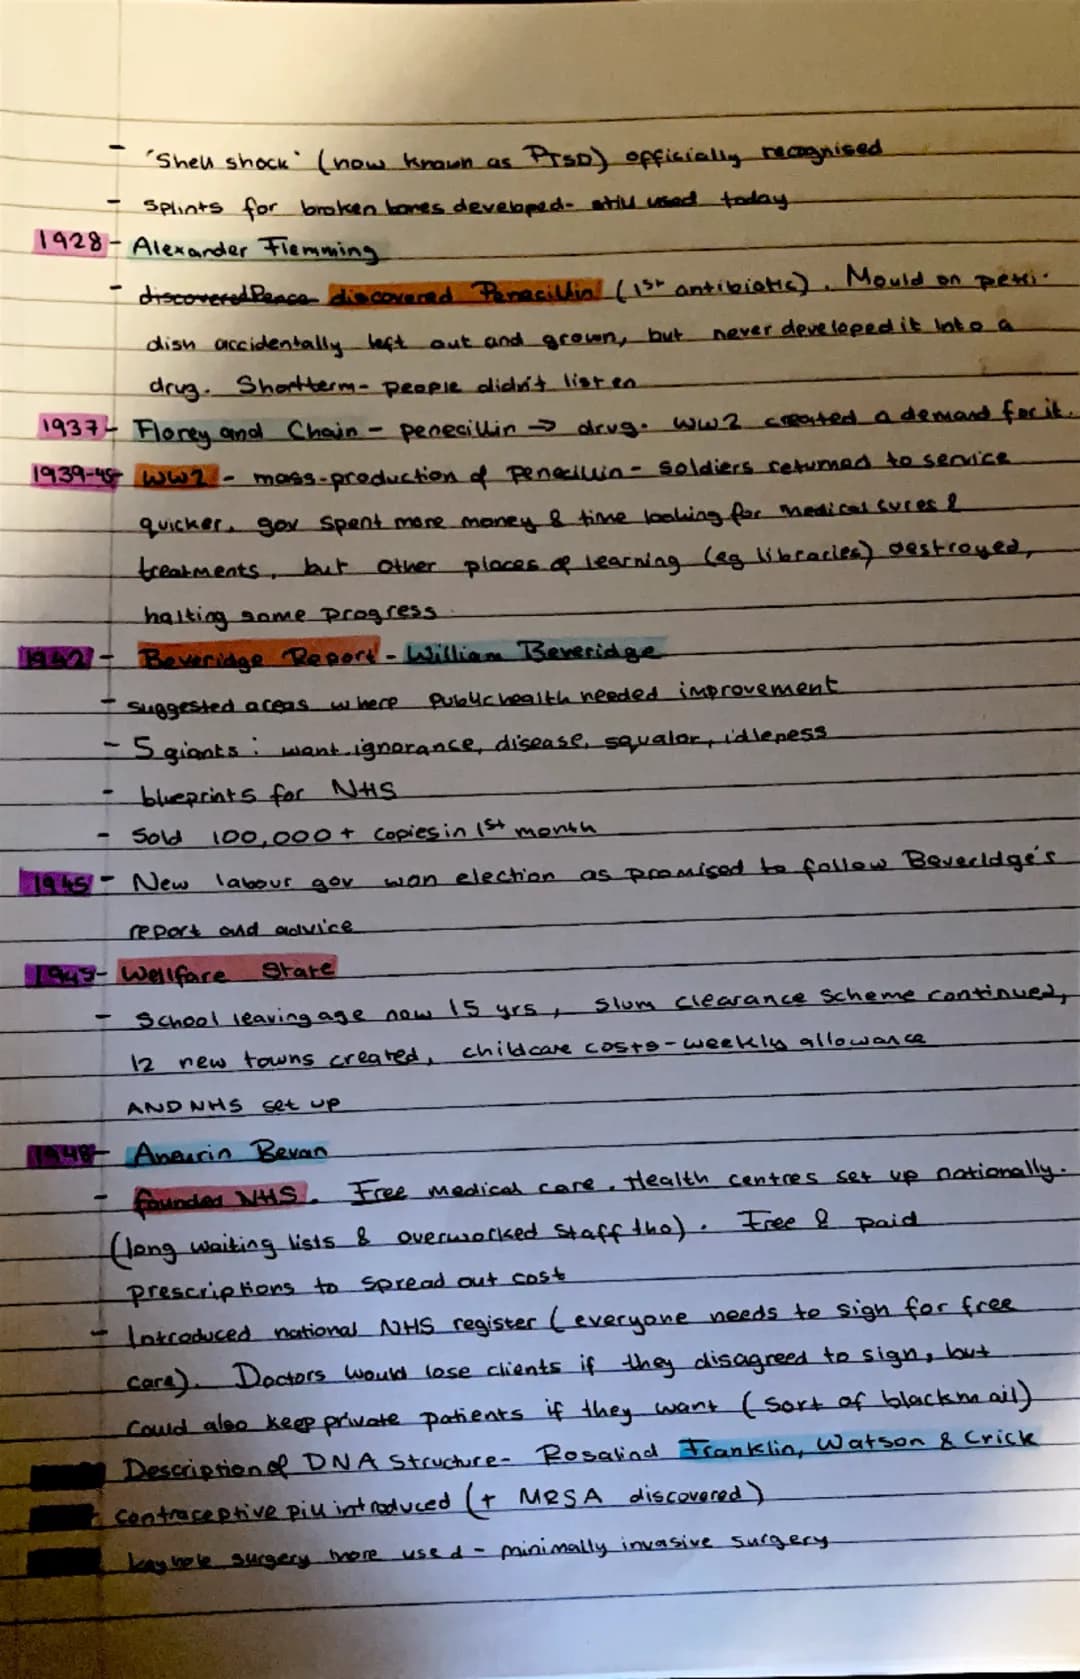 - 'Shell shock' (now known as PTSD) officially recognised
- Splints for broken bones developed - still used today
1928 - Alexander Flemming
- discovered Penace discovered Penacillin (1st antibiotic). Mould on petri-
dish accidentally left out and grown, but never developed it into a
drug. Shortterm - people didn't listen
1937 - Florey and Chain - penecillin → drug. WW2 created a demand for it.
1939-45 WW2 - mass-production of Penecillin - soldiers returned to service
quicker, gov spent more money & time looking for medical cures &
treatments, but other places of learning (eg libraries) destroyed,
halting some progress
1942 - Beveridge Report - William Beveridge
- Suggested areas where public health needed improvement
- 5 giants: want, ignorance, disease, squalor, idleness
- blueprints for NHS
- Sold 100,000+ copies in 1st month
1945 - New labour gov won election as promised to follow Beveridge's
report and advice
- Wellfare State
- School leaving age now 15 yrs, Slum clearance Scheme continued,
12 new towns created, childcare costs - weekly allowance
AND NHS set up
1948 - Aneurin Bevan
- founded NHS. Free medical care. Health centres set up nationally.
(long waiting lists & overworked staff tho). Free & paid
prescriptions to spread out cost
- Introduced national NHS register (everyone needs to sign for free
care). Doctors would lose clients if they disagreed to sign, but
could also keep private patients if they want (sort of blackmail)
Description of DNA Structure - Rosalind Franklin, Watson & Crick
contraceptive pill introduced (+ MRSA discovered)
keyhole surgery more used - minimally invasive surgery